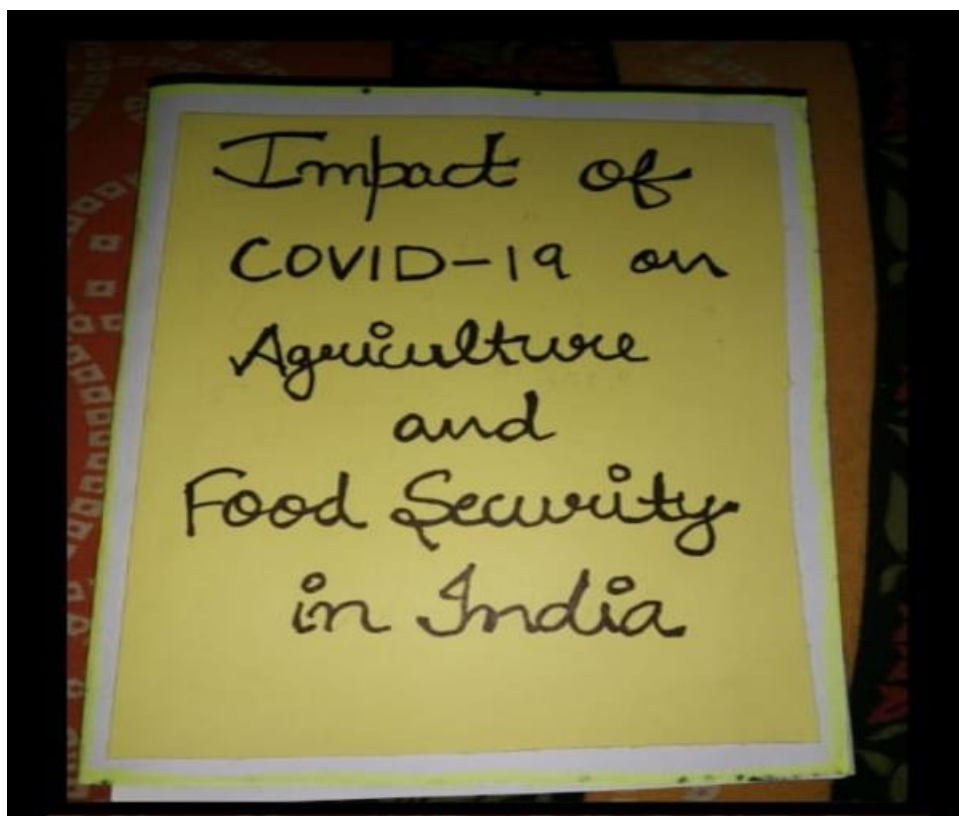 Impact of
COVID-19 on
Agriculture
and
Food Security
in India